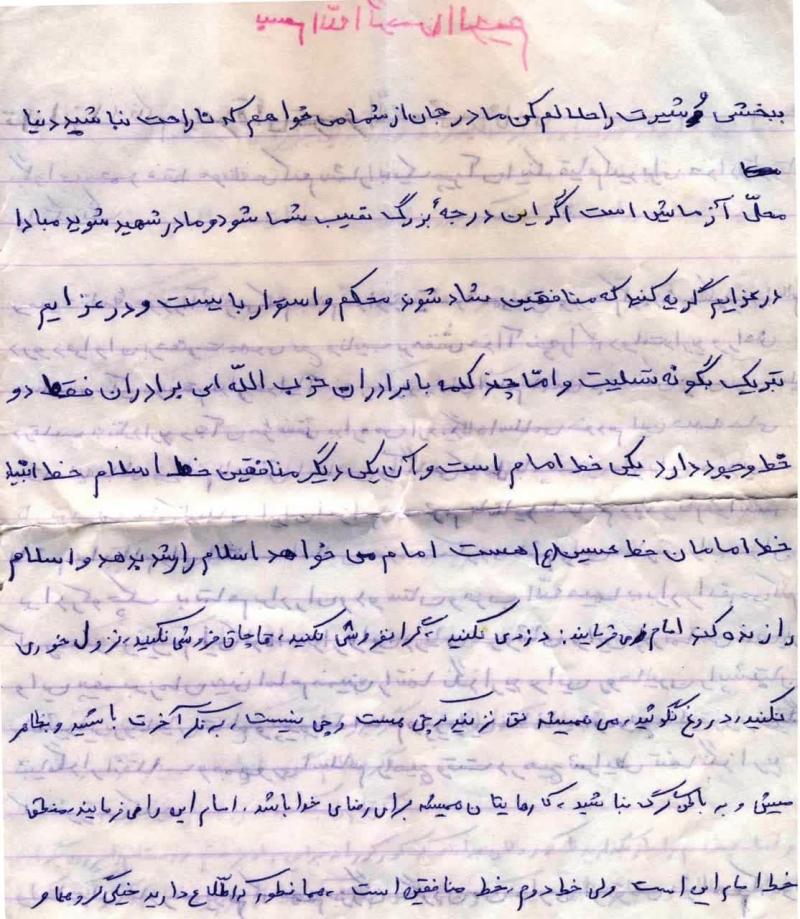 بسم الله الرحمن الرحیم
ببخشی و شیرت را حلالم کن مادر جان از شما می خواهم که ناراحت نباشید دنیا
محلّ آزمایش است اگر این درجهٔ بزرگ نصیب شما شود و مادر شهید شوید مبادا
در عزایم گریه کنید که منافقین شاد شوند محکم و استوار بایست و در عزایم
تبریک بگو نه تسلیت و امّا چند کلمه با برادران حزب اللّه ای برادران فقط دو
خط وجود دارد یکی خط امام است و آن یکی دیگر منافقین خط اسلام خط انبیاء
خط امامان خط حسین (ع) هست امام می خواهد اسلام را رشد بدهد و اسلام
را زنده کند امام می فرمایند: دزدی نکنید، گرانفروشی نکنید، قاچاق فروشی نکنید، نزول خوری
نکنید، دروغ نگوئید، می همیشه نق نزنید که چی هست و چی نیست، به فکر آخرت باشید و بظاهر
و به باشید، کارهایتان همیشه برای رضای خدا باشد. امام این را می فرمایند، منطق
خط امام این است ولی خط دوم، خط منافقین است، همانطور که اطّلاع دارید خیلی گروهها و